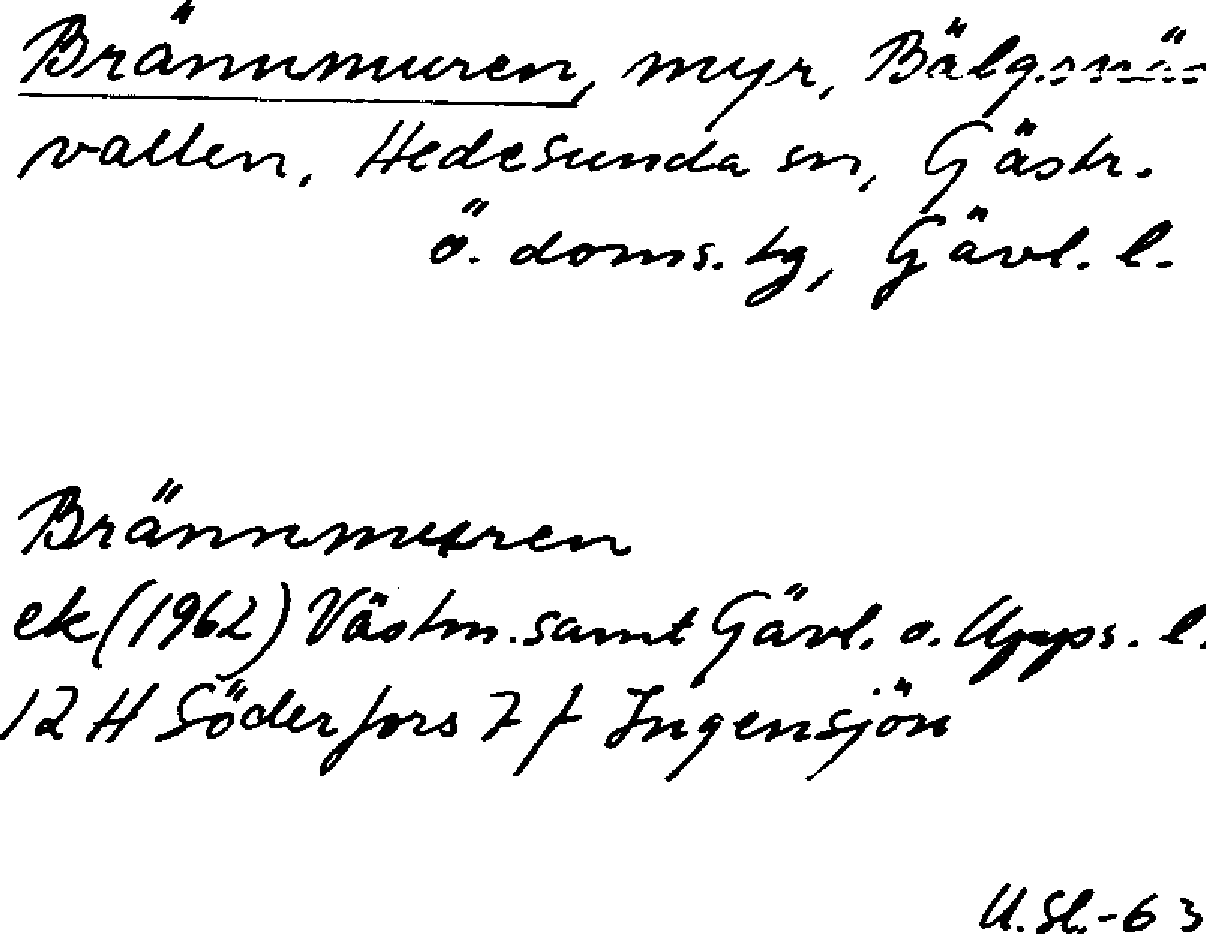 Brännmuren, myr, Bälgsnäs
vallen, Hedesunda sn, Gästr.
ö. doms. tg, Gävl. l.
Brännmuren
ek (1962) Västm. samt Gävl. o. Upps. l.
12 H Söderfors 7 f Ingensjön
U.Sl.-63